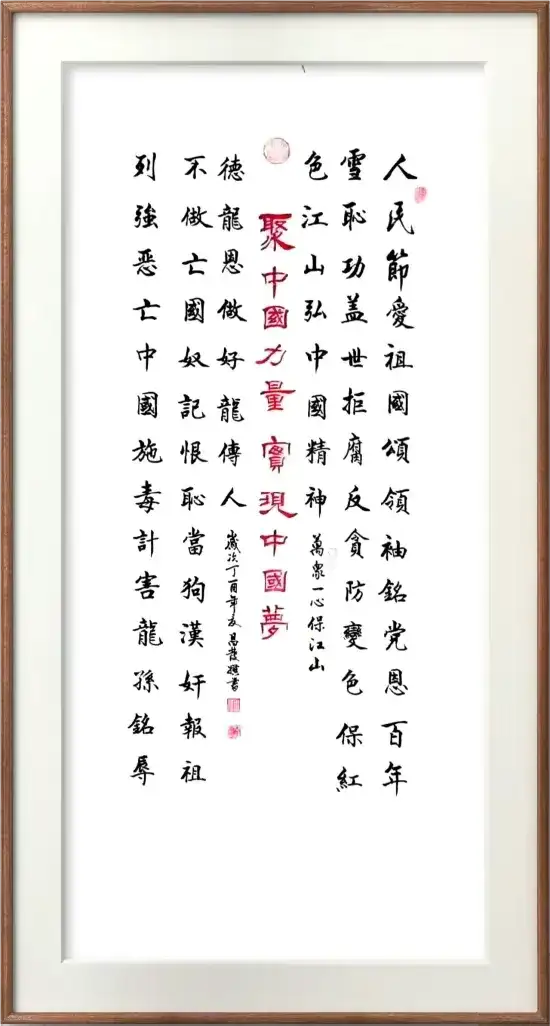 人民節愛祖國頌領袖銘党恩百年
雪恥功盖世拒腐反貪防變色保紅
色江山弘中國精神
萬衆一心保江山
聚中國力量 實現中國夢
列強惡亡中國施毒計害龍孫銘辱
不做亡國奴記恨恥當狗漢奸報祖
德龍恩做好龍傳人
歲次丁酉年 昌發撰書